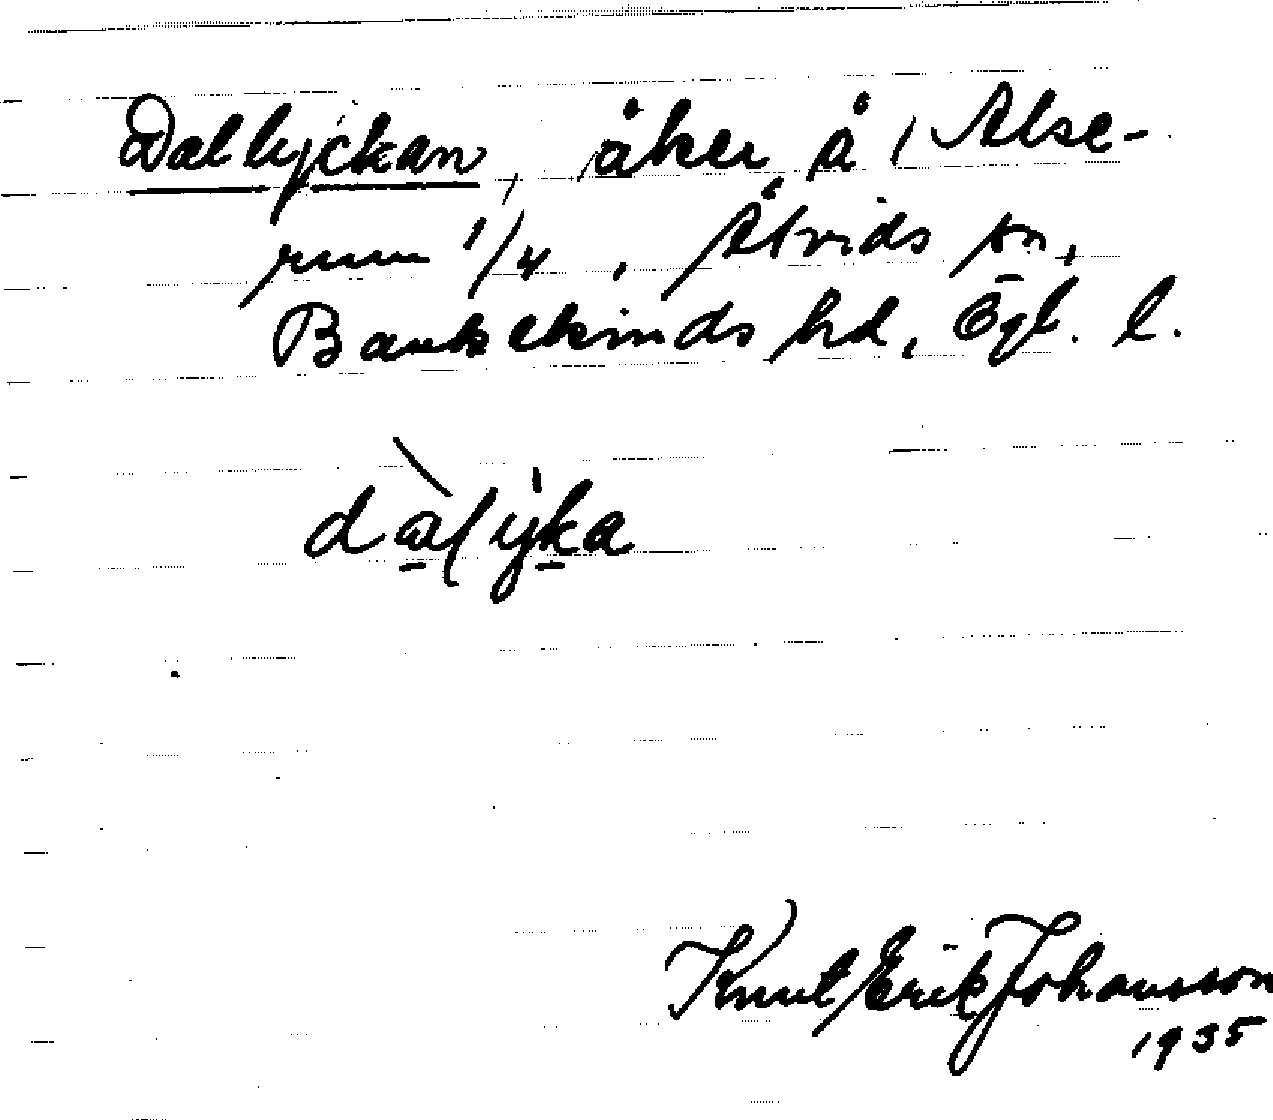 Dallyckan, åker å Alse-
rum 1/4, Åtvids sn,
Bankekinds hd, Ögl. l.
dàlỳka
Knut Erik Johansson
1935